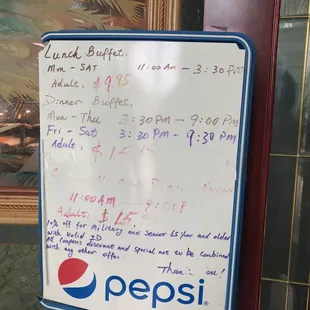 Lunch Buffet.
Mon - SAT 11:00 Am - 3:30 Pm
Adult: $9.95
Dinner Buffet,
Mon - Thu 3:30 Pm - 9:00 Pm
Fri - Sat 3:30 Pm - 9:30 Pm
Adult: $15
11:00 AM - Pm
Adults: $15
10% off for military and senior 65 year and older
with valid ID
All coupons discount and special not to be combined
with any other offer.
Than ou!
pepsi